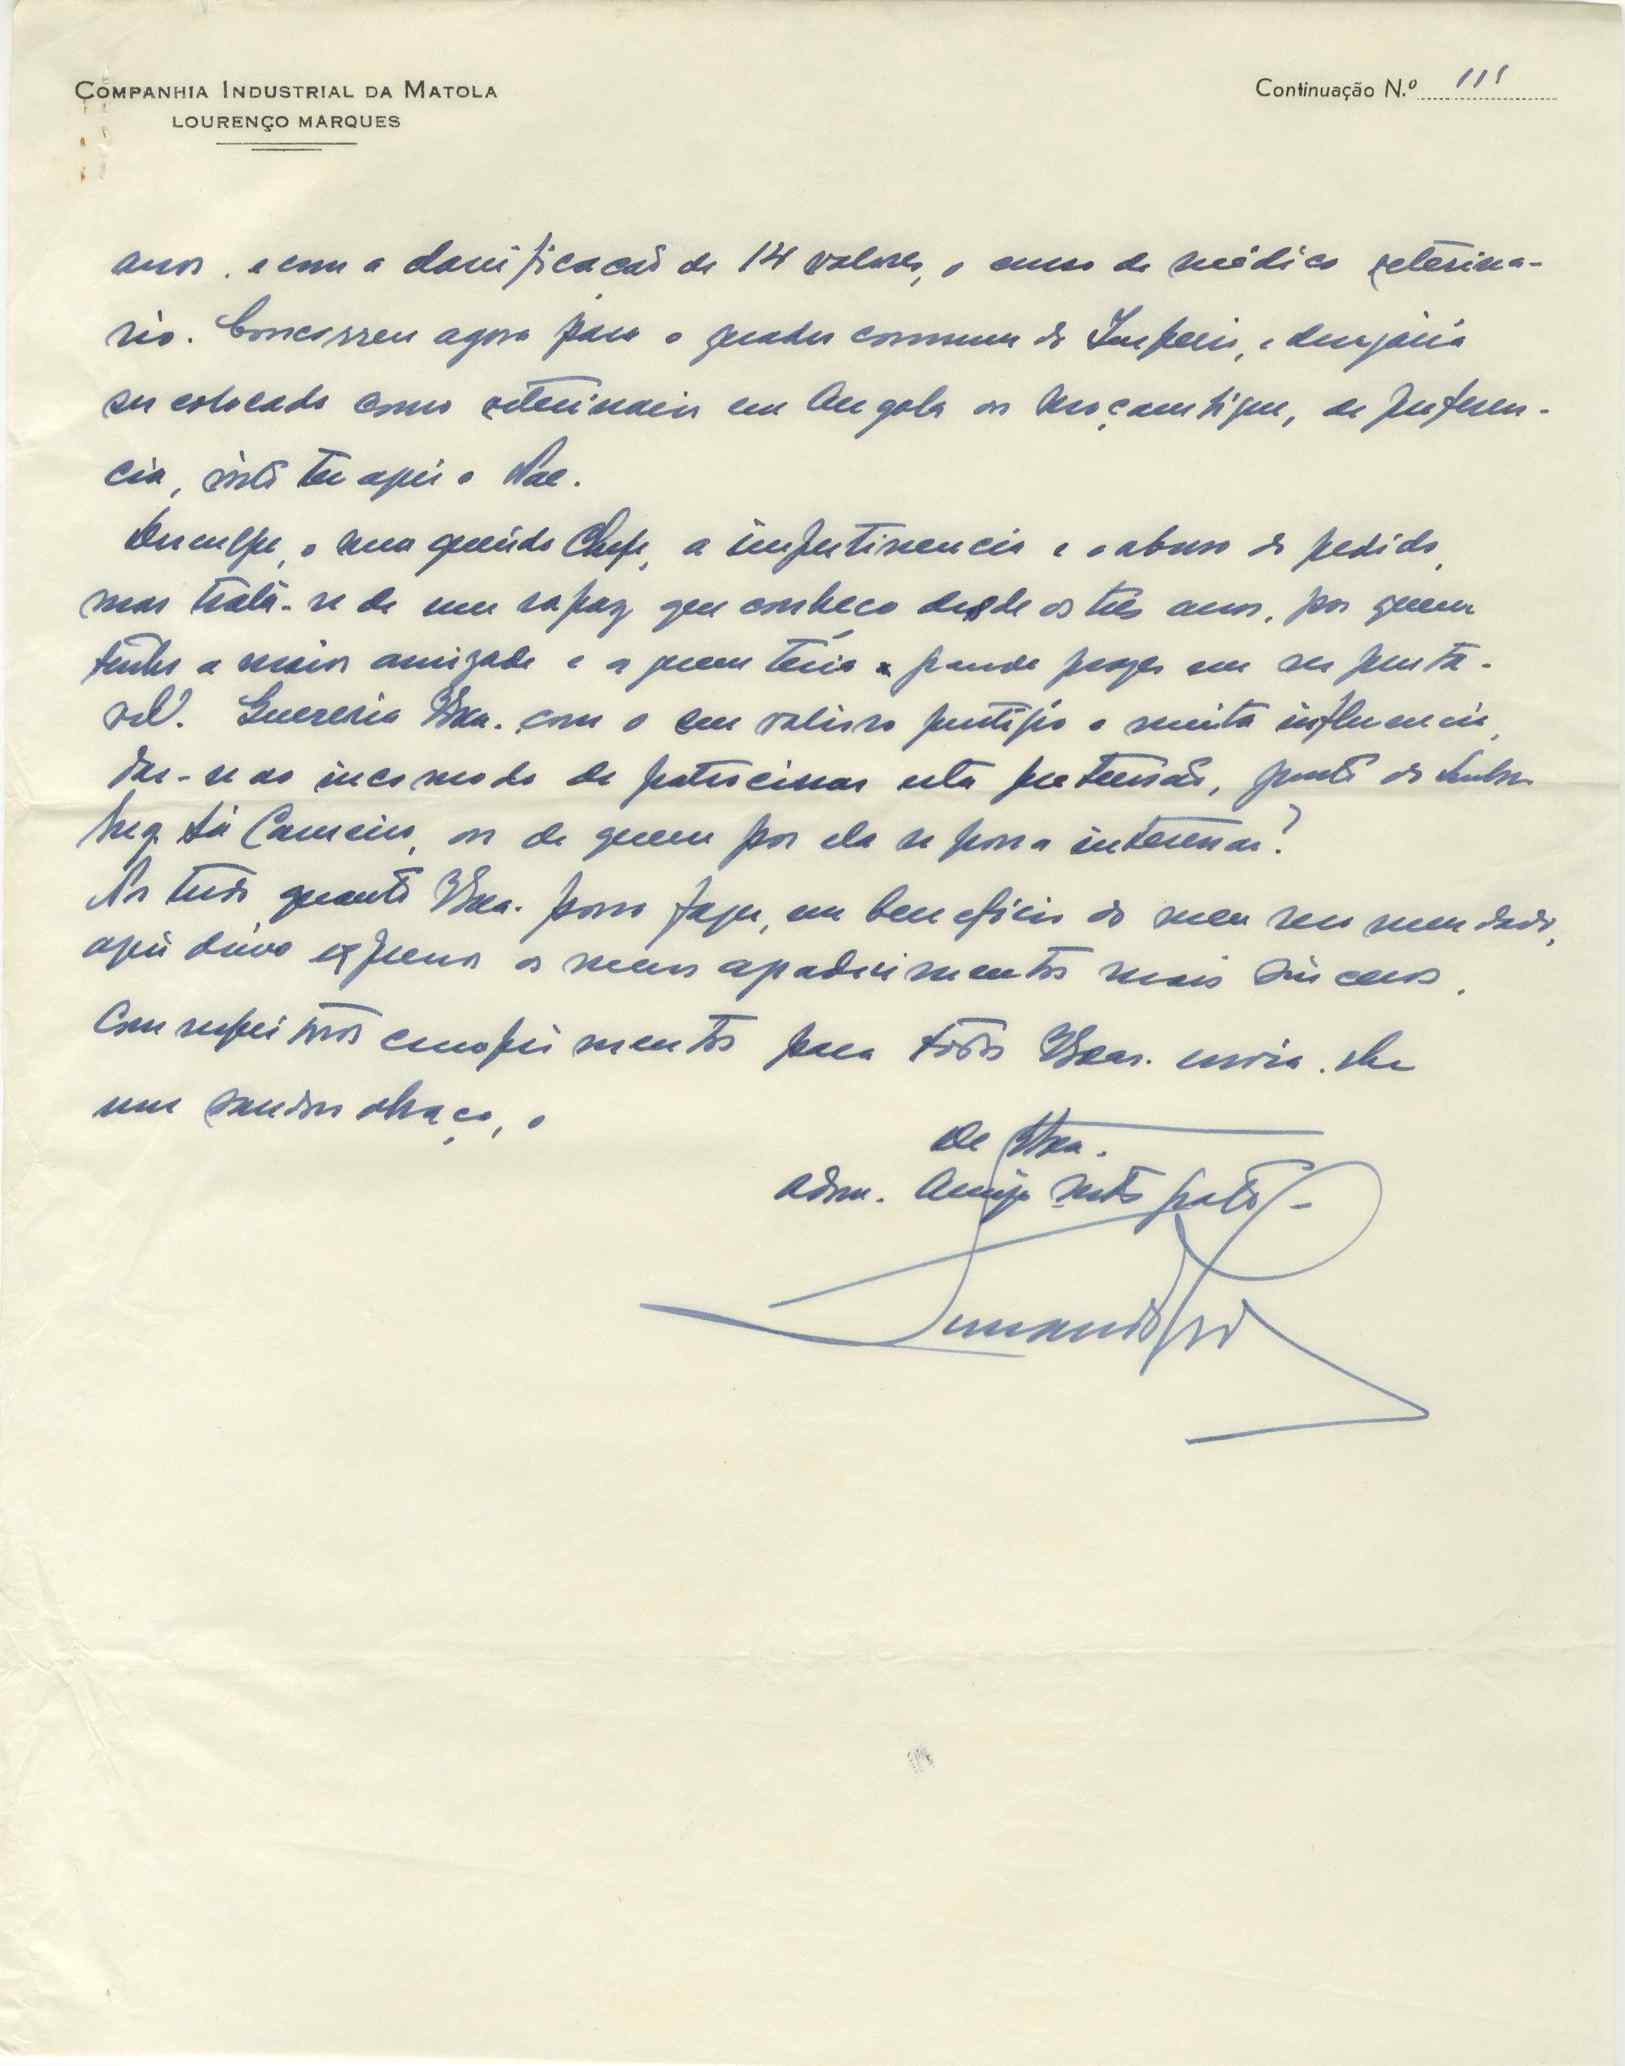 COMPANHIA INDUSTRIAL DA MATOLA
LOURENÇO MARQUES
Continuação N.º 111
anos, e com a classificação de 14 valores, o curso de médico veterina-
rio. Concorreu agora para o quadro commum do Imperio, e desejaria
ser colocado como veterinario em Angola ou Moçambique, de preferen-
cia, visto ter aqui o Pae.
Desculpe, o meu querido Chefe, a impertinencia e o abuso do pedido,
mas trata-se de um rapaz que conheço desde os três anos, por quem
tenho a maior amizade e a quem teria grande prazer em ser presta-
vel. Quereria VExa. com o seu valioso prestijio e muita influencia,
dar-se ao incomodo de patrocinar esta pretensão, junto do Senhor
Sá Carneiro, ou de quem por ela se possa interessar?
Por tudo quanto VExa. possa fazer, em beneficio do meu recomendado,
aqui deixo expresso os meus agradecimentos mais sinceros.
Com respeitosos cumprimentos para todos VExas. envia-lhe
um saudoso abraço, o
De VExa.
Adm. Amigo Mto grato